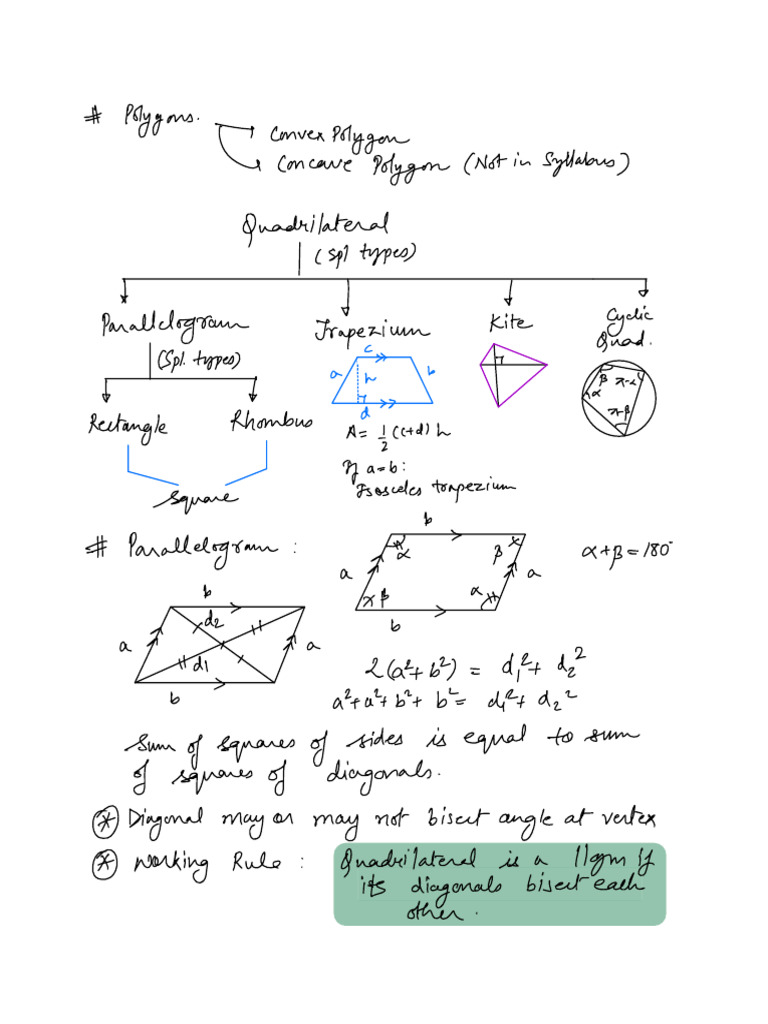 # Polygons.
Convex Polygon
Concave Polygon (Not in Syllabus)
Quadrilateral
(Spl types)
Parallelogram
Trapezium
Kite
Cyclic
Quad.
(Spl. types)
c
a
h
b
d
β
π-α
α
π-β
Rectangle
Rhombus
A = 1/2 (c+d) h
If a=b:
Isosceles trapezium
Square
# Parallelogram :
b
α
β
a
a
β
α
b
α+β=180°
b
d2
a
a
d1
b
2(a²+b²) = d₁²+ d₂²
a²+a²+b²+ b²= d₁²+ d₂²
Sum of squares of sides is equal to sum
of squares of diagonals.
* Diagonal may or may not bisect angle at vertex
* Working Rule : Quadrilateral is a 11gm if
its diagonals bisect each
other.